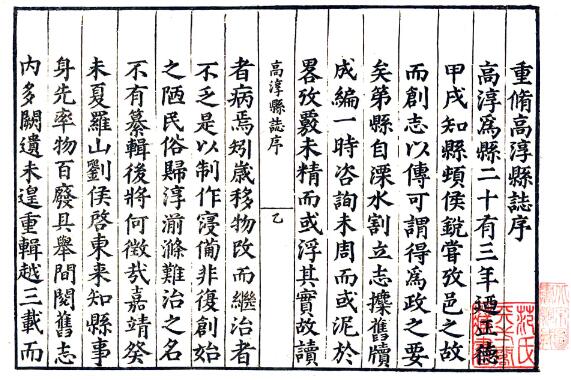 重脩高淳縣誌序
高淳爲縣二十有三年廼正德
甲戌知縣頓侯銳嘗攷邑之故
而創志以傳可謂得爲政之要
矣第縣自溧水割立志攗舊牘
成編一時咨詢未周而或泥於
畧攷覈未精而或浮其實故讀
高淳縣誌序
乙
者病焉矧歲移物改而繼治者
不乏是以制作寖備非復創始
之陋民俗歸淳湔滌難治之名
不有纂輯後將何徵哉嘉靖癸
未夏羅山劉侯啓東来知縣事
身先率物百廢具舉間閱舊志
内多闕遺未遑重輯越三載而